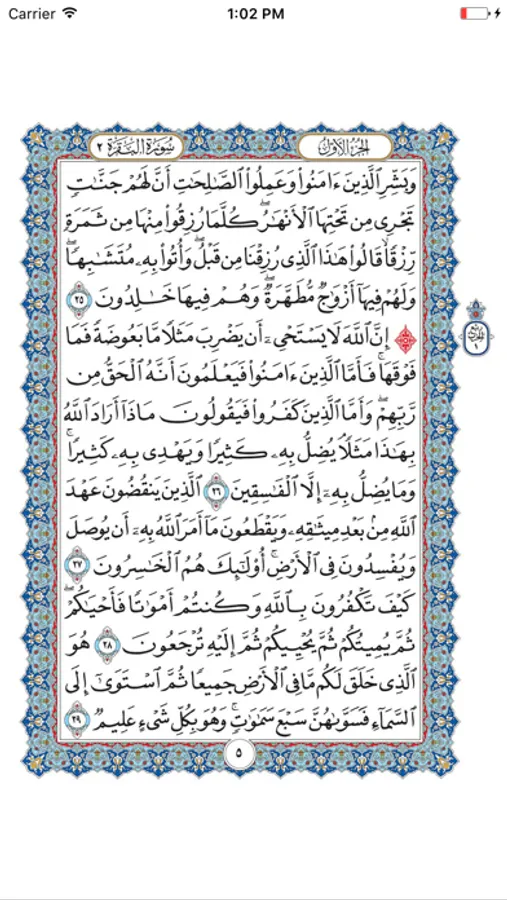 Carrier 1:02 PM
سُورَةُ الْبَقَرَة ٢ الجُزْءُ الأَوَّلُ
وَبَشِّرِ الَّذِينَ ءَامَنُوا۟ وَعَمِلُوا۟ الصَّٰلِحَٰتِ أَنَّ لَهُمْ جَنَّٰتٍ
تَجْرِى مِن تَحْتِهَا الْأَنْهَٰرُ ۖ كُلَّمَا رُزِقُوا۟ مِنْهَا مِن ثَمَرَةٍ
رِّزْقًا ۙ قَالُوا۟ هَٰذَا الَّذِى رُزِقْنَا مِن قَبْلُ ۖ وَأُتُوا۟ بِهِۦ مُتَشَٰبِهًا ۖ
وَلَهُمْ فِيهَآ أَزْوَٰجٌ مُّطَهَّرَةٌ ۖ وَهُمْ فِيهَا خَٰلِدُونَ ٢٥
إِنَّ اللَّهَ لَا يَسْتَحْىِۦٓ أَن يَضْرِبَ مَثَلًا مَّا بَعُوضَةً فَمَا
فَوْقَهَا ۚ فَأَمَّا الَّذِينَ ءَامَنُوا۟ فَيَعْلَمُونَ أَنَّهُ الْحَقُّ مِن
رَّبِّهِمْ ۖ وَأَمَّا الَّذِينَ كَفَرُوا۟ فَيَقُولُونَ مَاذَآ أَرَادَ اللَّهُ
بِهَٰذَا مَثَلًا ۘ يُضِلُّ بِهِۦ كَثِيرًا وَيَهْدِى بِهِۦ كَثِيرًا ۚ
وَمَا يُضِلُّ بِهِۦٓ إِلَّا الْفَٰسِقِينَ ٢٦ الَّذِينَ يَنقُضُونَ عَهْدَ
اللَّهِ مِنۢ بَعْدِ مِيثَٰقِهِۦ وَيَقْطَعُونَ مَآ أَمَرَ اللَّهُ بِهِۦٓ أَن يُوصَلَ
وَيُفْسِدُونَ فِى الْأَرْضِ ۚ أُو۟لَٰٓئِكَ هُمُ الْخَٰسِرُونَ ٢٧
كَيْفَ تَكْفُرُونَ بِاللَّهِ وَكُنتُمْ أَمْوَٰتًا فَأَحْيَٰكُمْ ۖ
ثُمَّ يُمِيتُكُمْ ثُمَّ يُحْيِيكُمْ ثُمَّ إِلَيْهِ تُرْجَعُونَ ٢٨ هُوَ
الَّذِى خَلَقَ لَكُم مَّا فِى الْأَرْضِ جَمِيعًا ثُمَّ اسْتَوَىٰٓ إِلَى
السَّمَآءِ فَسَوَّىٰهُنَّ سَبْعَ سَمَٰوَٰتٍ ۚ وَهُوَ بِكُلِّ شَىْءٍ عَلِيمٌ ٢٩
٥